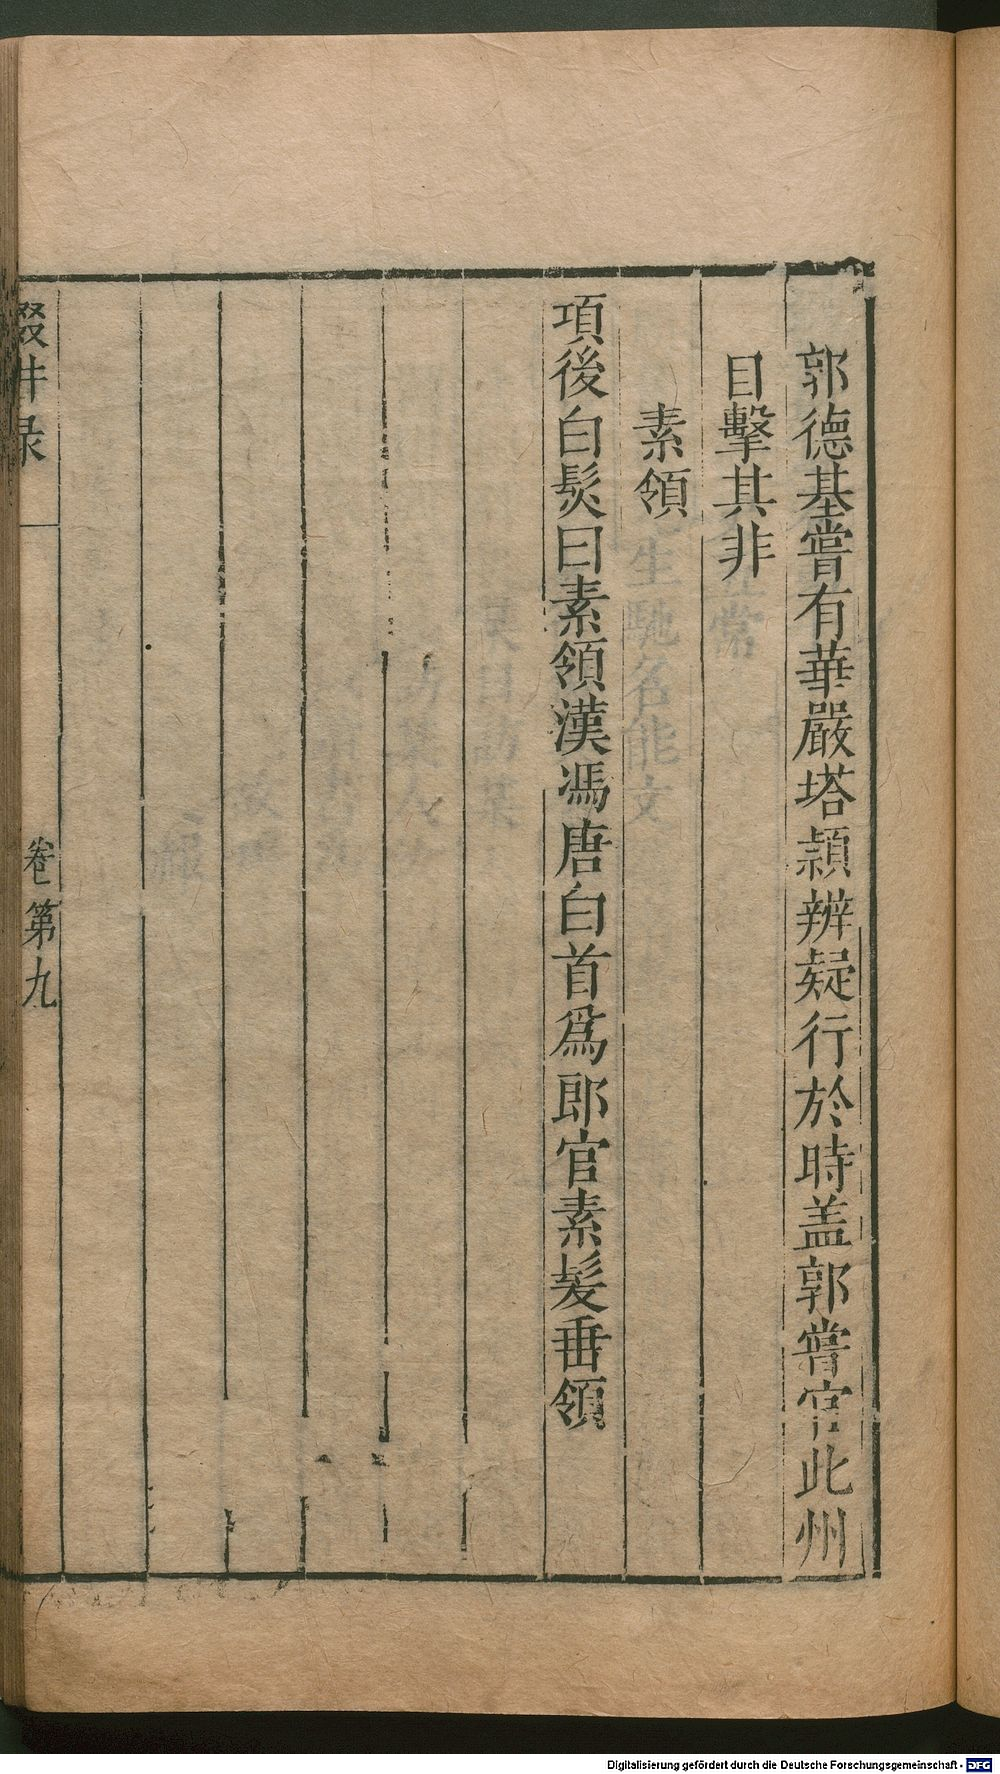 郭德基嘗有華嚴塔頴辨疑行於時盖郭嘗官此州
目擊其非
素領
項後白髮曰素領漢馮唐白首爲郎官素髮垂領
輟耕录
卷第九
Digitalisierung gefördert durch die Deutsche Forschungsgemeinschaft - DFG